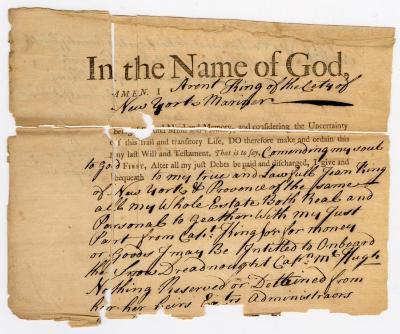 In the Name of God,
AMEN. I Aront King of the Cety of
New York Mariner
being of Sound Mind and Memory, and considering the Uncertainty
of this frail and transitory Life, DO therefore make and ordain this
my last Will and Testament, That is to say, Comending my soul
to god FIRST, After all my just Debts be paid and discharged, I give and
bequeath to my true and Lawfull Jean King
of New York & Provence of the same
all my Whole Estate Both Real and
Personal to geather With my Just
Part from Capt. King for for money
or Goods I may Be Intitled to Onboard
the Snow Dreadnought Capn. Mc Hugh
Nothing Reserved or Detained from
her her heirs Exrs Administraors